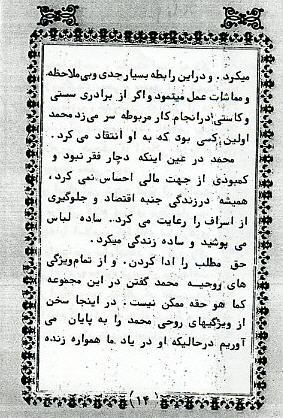 میکرد . و دراین رابطه بسیار جدی وبی ملاحظه
و مماشات عمل مینمود واگر از برادری سستی
و کاستی درانجام کار مربوطه سر می زد محمد
اولین کسی بود که به او أنتقاد می کرد .
محمد در عین اینکه دچار فقر نبود و
کمبودی از جهت مالی احساس نمی کرد ،
همیشه درزندگی جنبه اقتصاد و جلوگیری
از اسراف را رعایت می کرد.. ساده لباس
می پوشید و ساده زندگی میکرد .
حق مطلب را ادا کردن . و از تمام ویژگی
های روحیه محمد گفتن در این مجموعه
کما هو حقه ممکن نیست . در اینجا سخن
از ویژگیهای روحی محمد را به پایان می
آوریم درحالیکه او در یاد ما همواره زنده
(۱۴)